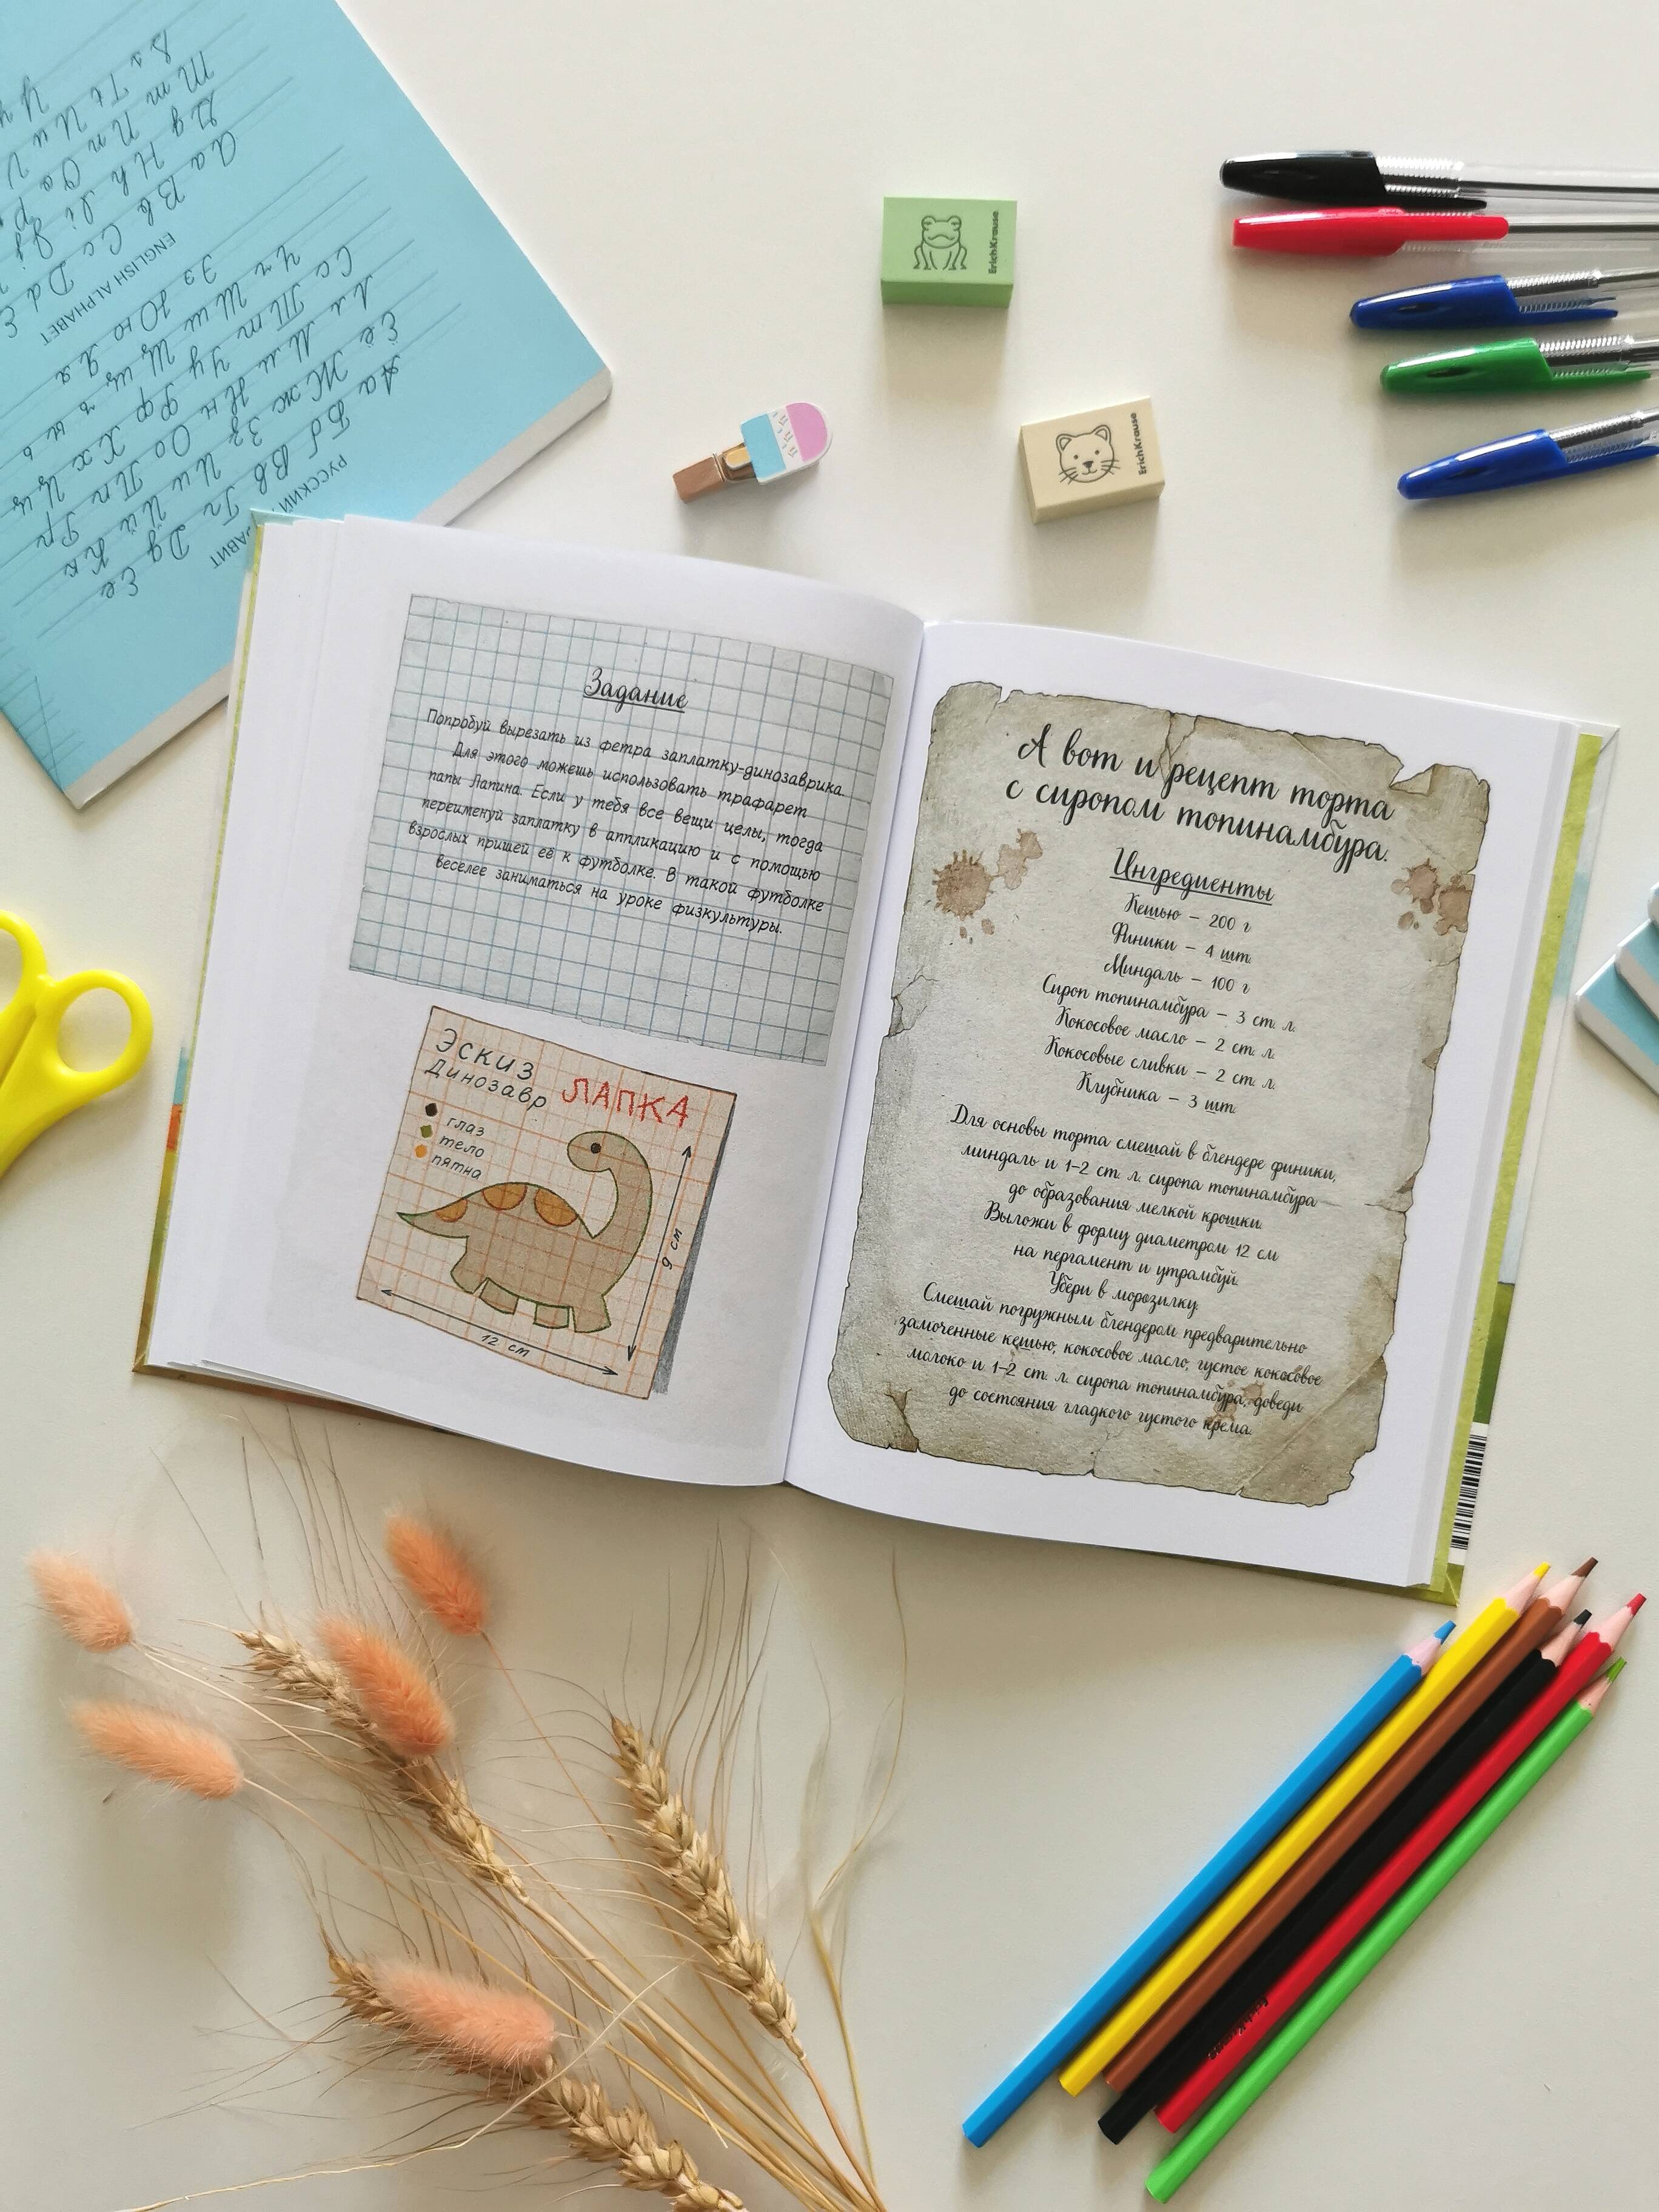 Задание
Попробуй вырезать из фетра заплатку-динозаврика.
Для этого можешь использовать трафарет
папы Лапина. Если у тебя все вещи целы, тогда
переименуй заплатку в аппликацию и с помощью
взрослых пришей её к футболке. В такой футболке
веселее заниматься на уроке физкультуры.
ЭСКИЗ
Динозавр ЛАПКА
глаз
тело
пятна
9 см
12 см
А вот и рецепт торта
с сиропом топинамбура.
Ингредиенты
Кешью – 200 г
Финики – 4 шт.
Миндаль – 100 г
Сироп топинамбура – 3 ст. л.
Кокосовое масло – 2 ст. л.
Кокосовые сливки – 2 ст. л.
Клубника – 3 шт.
Для основы торта смешай в блендере финики,
миндаль и 1-2 ст. л. сиропа топинамбура
до образования мелкой крошки.
Выложи в форму диаметром 12 см
на пергамент и утрамбуй.
Убери в морозилку.
Смешай погружным блендером предварительно
замоченные кешью, кокосовое масло, густое кокосовое
молоко и 1-2 ст. л. сиропа топинамбура, доведи
до состояния гладкого густого крема.
ErichKrause
ErichKrause
РУССКИЙ
Аа Бб Вв Гг Дд Ее
Ёё Жж Зз Ии Йй Кк
Лл Мм Нн Оо Пп Рр
Сс Тт Уу Фф Хх Цц
Чч Шш Щщ ъ ы ь
Ээ Юю Яя
ENGLISH ALPHABET
Aa Bb Cc Dd